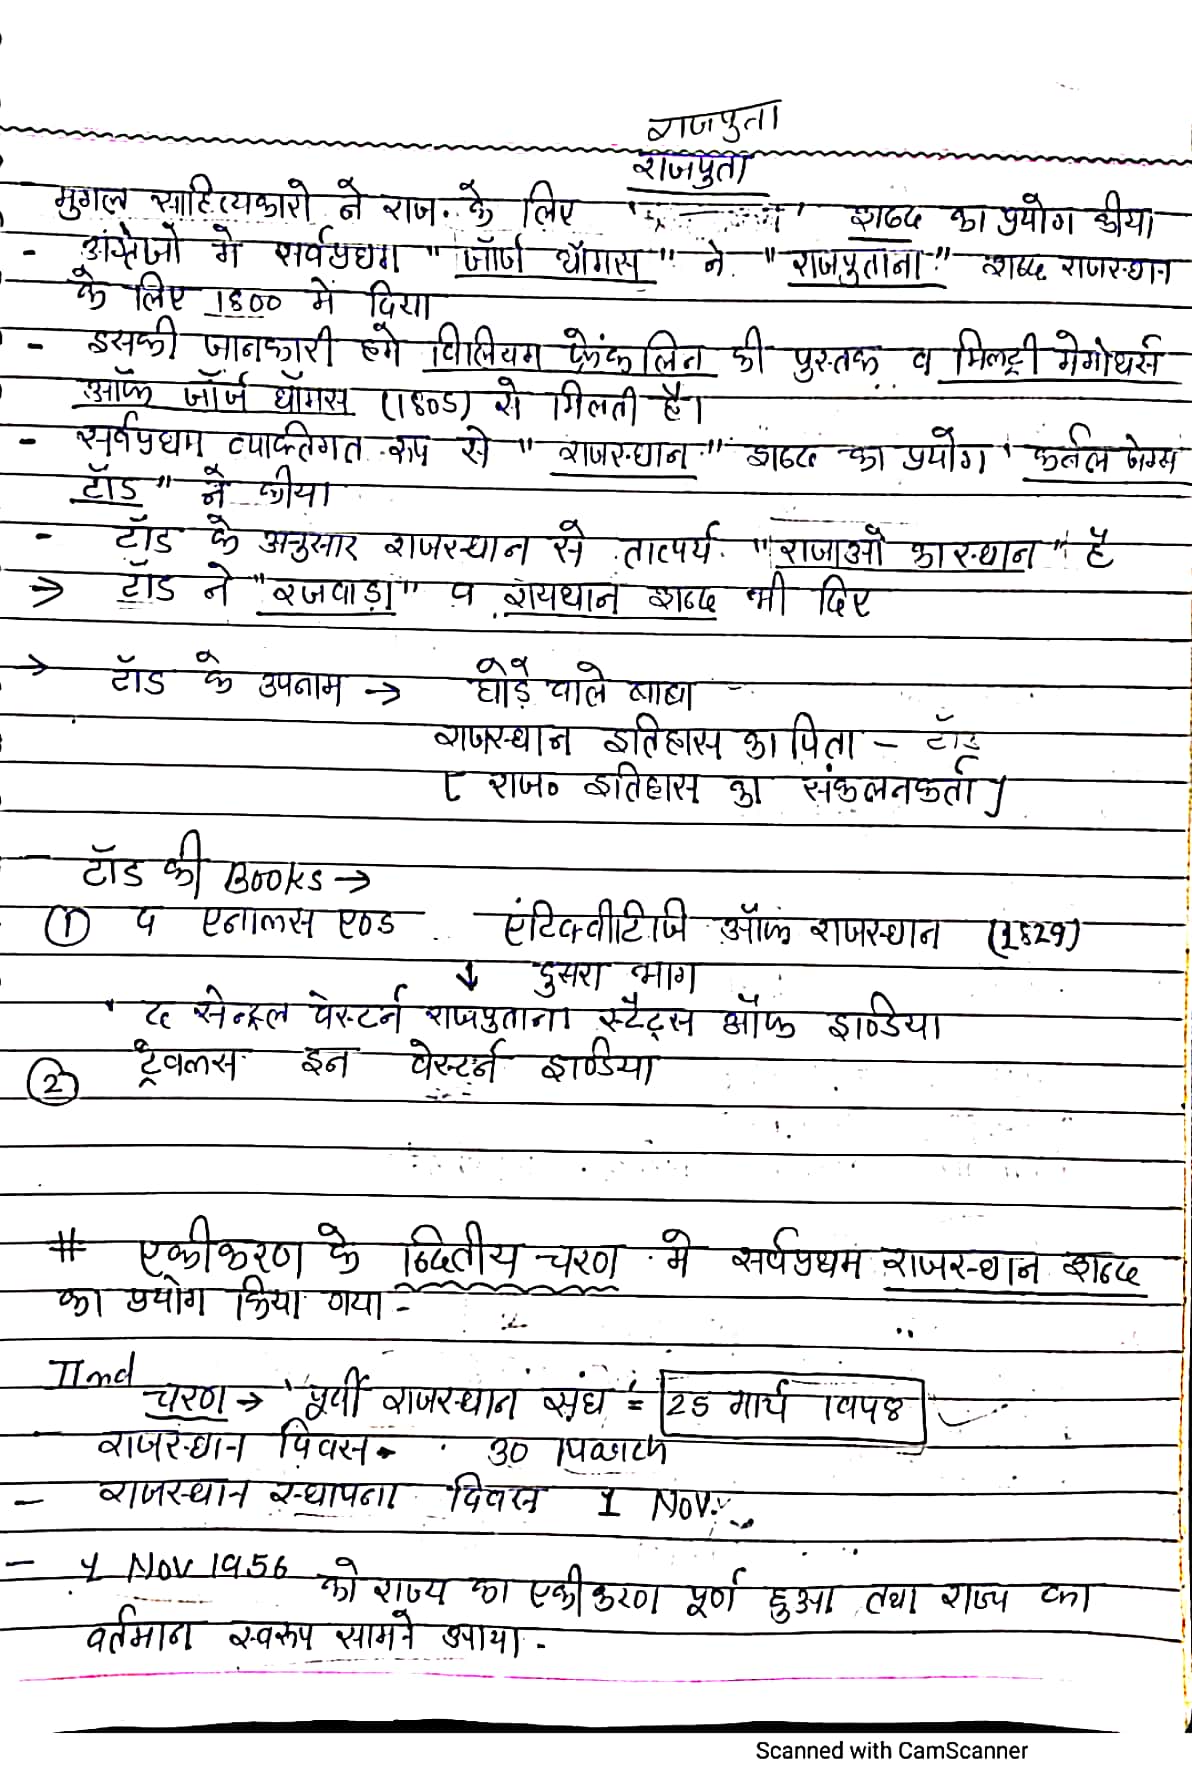 राजपुता
राजपुता
मुगल साहित्यकारो ने राज. के लिए ' ' शब्द का प्रयोग कीया
- अंग्रेजो मे सर्वप्रथम "जॉर्ज थॉमस" ने "राजपुताना" शब्द राजस्थान
के लिए 1800 में दिया
- इसकी जानकारी हमे विलियम फ्रेंकलिन की पुस्तक व मिलट्री मेमोयर्स
ऑफ जॉर्ज थॉमस (1805) से मिलती है।
- सर्वप्रथम व्यक्तिगत रूप से "राजस्थान" शब्द का प्रयोग ' कर्नल जेम्स
टॉड" ने कीया
- टॉड के अनुसार राजस्थान से तात्पर्य "राजाओ का स्थान" है
→ टॉड ने "रजवाड़ा" व रायथान शब्द भी दिए
→ टॉड के उपनाम → घोड़े वाले बाबा
राजस्थान इतिहास का पिता - टॉड
[ राज० इतिहास का संकलनकर्ता ]
टॉड की Books →
① द एनालस एण्ड एंटिक्वीटिजि ऑफ राजस्थान (1829)
↓ दुसरा भाग
' द सेन्ट्रल वेस्टर्न राजपुताना स्टेट्स ऑफ इण्डिया
② ट्रेवलस इन वेस्टर्न इण्डिया
# एकीकरण के द्वितीय चरण मे सर्वप्रथम राजस्थान शब्द
का प्रयोग किया गया -
IInd
चरण → पूर्वी राजस्थान संघ = 25 मार्च 1948
राजस्थान दिवस - 30 March
- राजस्थान स्थापना दिवस 1 Nov.
- 1 Nov 1956 को राज्य का एकीकरण पूर्ण हुआ तथा राज्य का
वर्तमान स्वरूप सामने आया -
Scanned with CamScanner